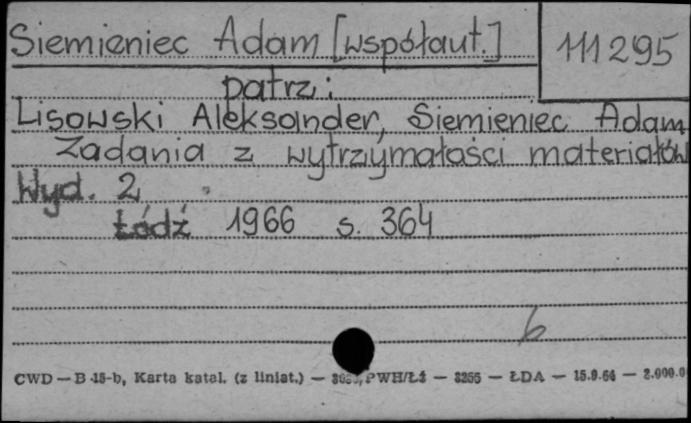 Siemieniec Adam [współaut.]
111295
patrz:
Lisowski Aleksander, Siemieniec Adam
Zadania z wytrzymałości materiałów
Wyd. 2
Łódź 1966 s. 364
b
CWD — B-15-b, Karta katal. (z liniat.) — PWH/Łź — 3255 — ŁDA — 15.9.64 —